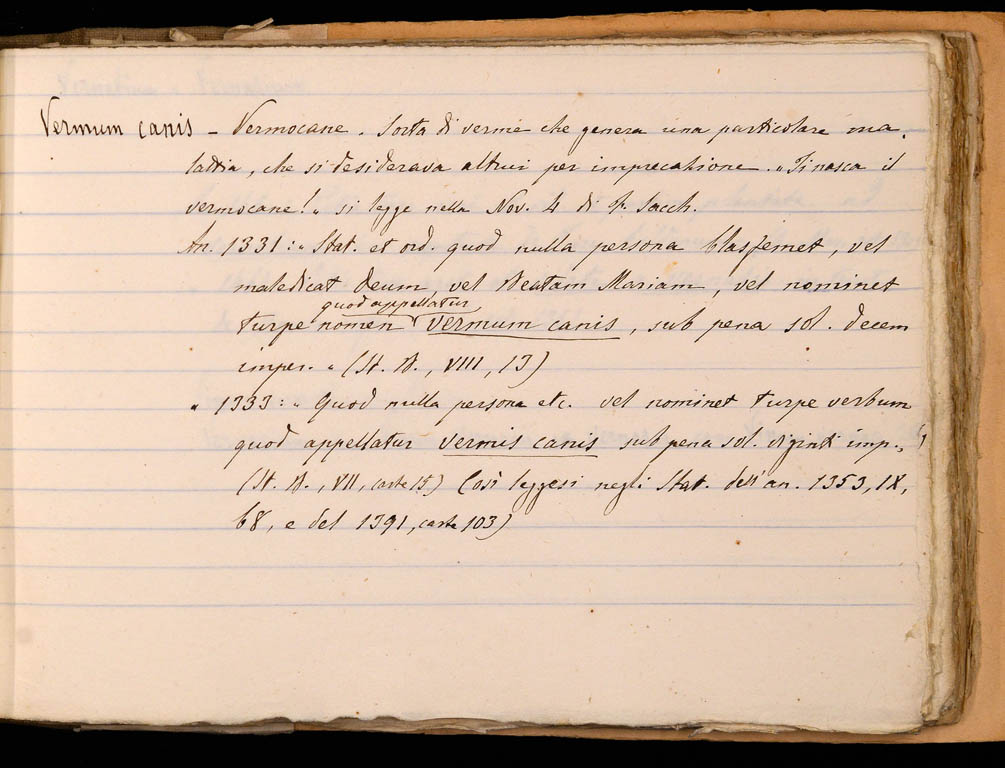 Vermum canis - Vermocane. Sorta di verme che genera una particolare ma-
lattia, che si desiderava altrui per imprecazione. "Ti nasca il
vermocane!" si legge nella Nov. 4 di F. Sacch.
An. 1331: "Stat. et ord. quod nulla persona blasfemet, vel
maledicat Deum, vel Beatam Mariam, vel nominet
quod appellatur
turpe nomen vermum canis, sub pena sol. decem
imper." (St. B., VIII, 13)
" 1333: "Quod nulla persona etc. vel nominet turpe verbum
quod appellatur vermis canis sub pena sol. viginti imp."
(St. B., VII, carte 15) Così leggesi negli Stat. dell'an. 1353, IX,
68, e del 1391, carte 103)